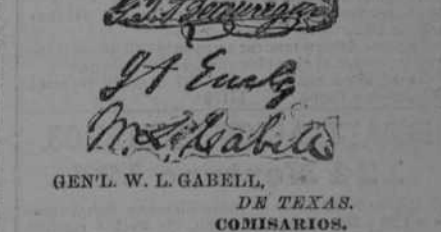 G. T. Beauregard
J A Early
W. L. Cabell
GEN'L. W. L. GABELL,
DE TEXAS.
COMISARIOS.